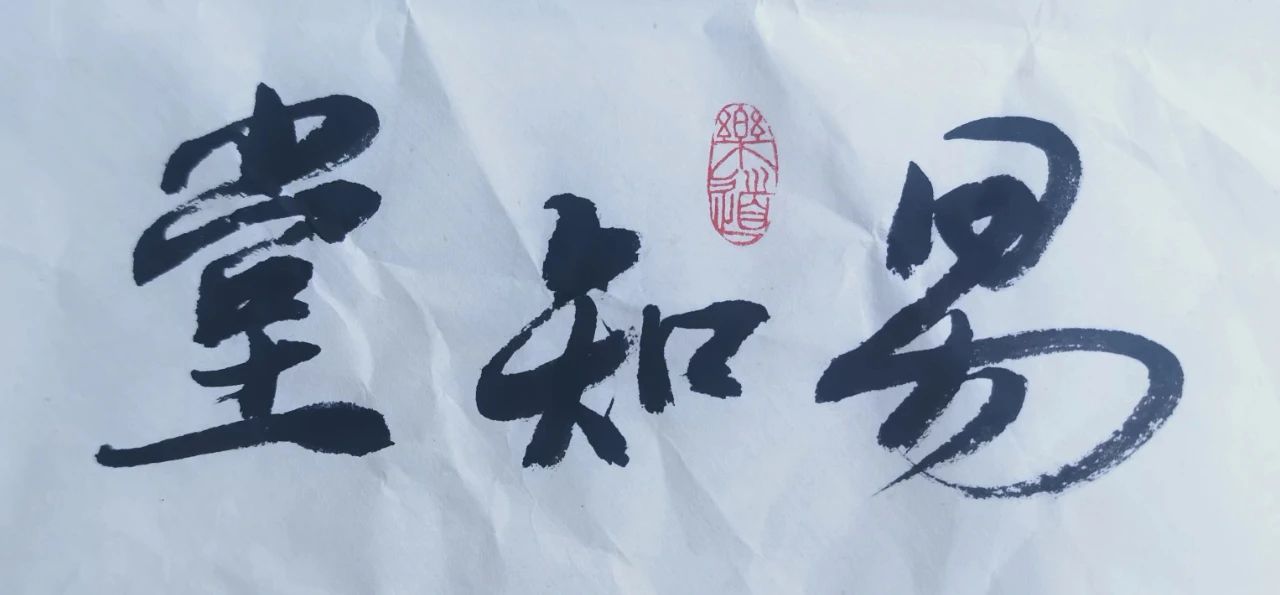 易知堂
樂道